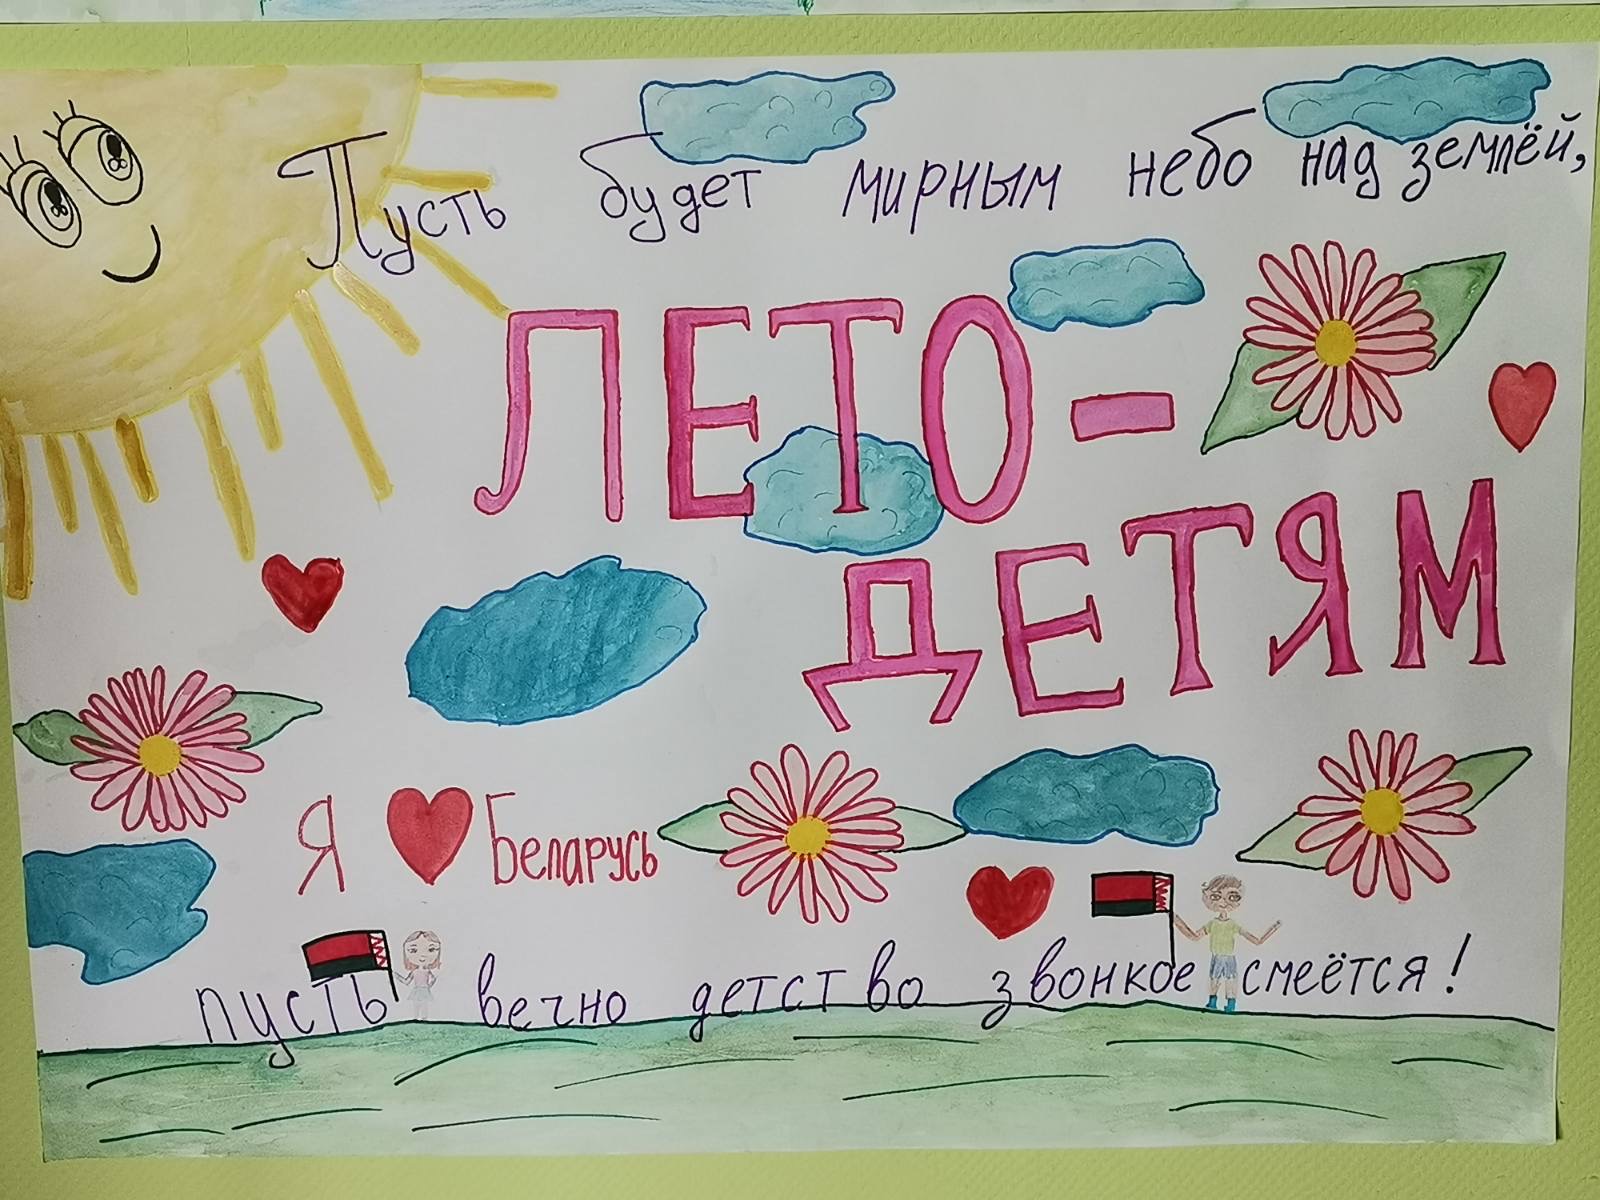 Пусть будет мирным небо над землёй,
ЛЕТО -
ДЕТЯМ
Я Беларусь
пусть вечно детство звонкое смеётся!